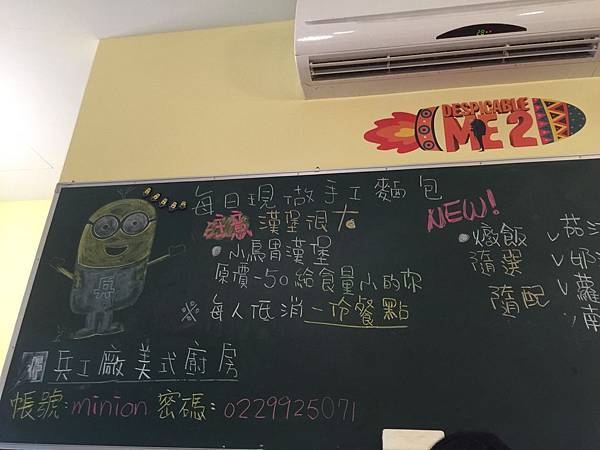 28
DESPICABLE
ME 2
每日現做手工麵包
注意 漢堡很大
• 小鳥胃漢堡
原價-50給食量小的你
※ 每人低消一份餐點
兵工廠美式廚房
帳號:minion 密碼:0229925071
NEW!
• 燉飯
隨選
隨配
兵